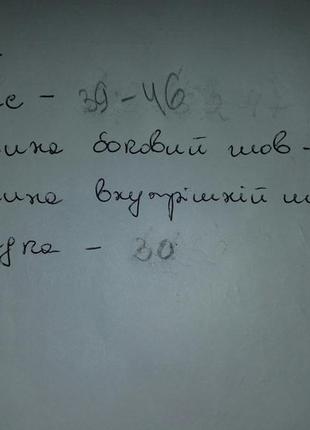 с - 39-46
ина боковий шов -
ина внутрішній ш
дка - 30